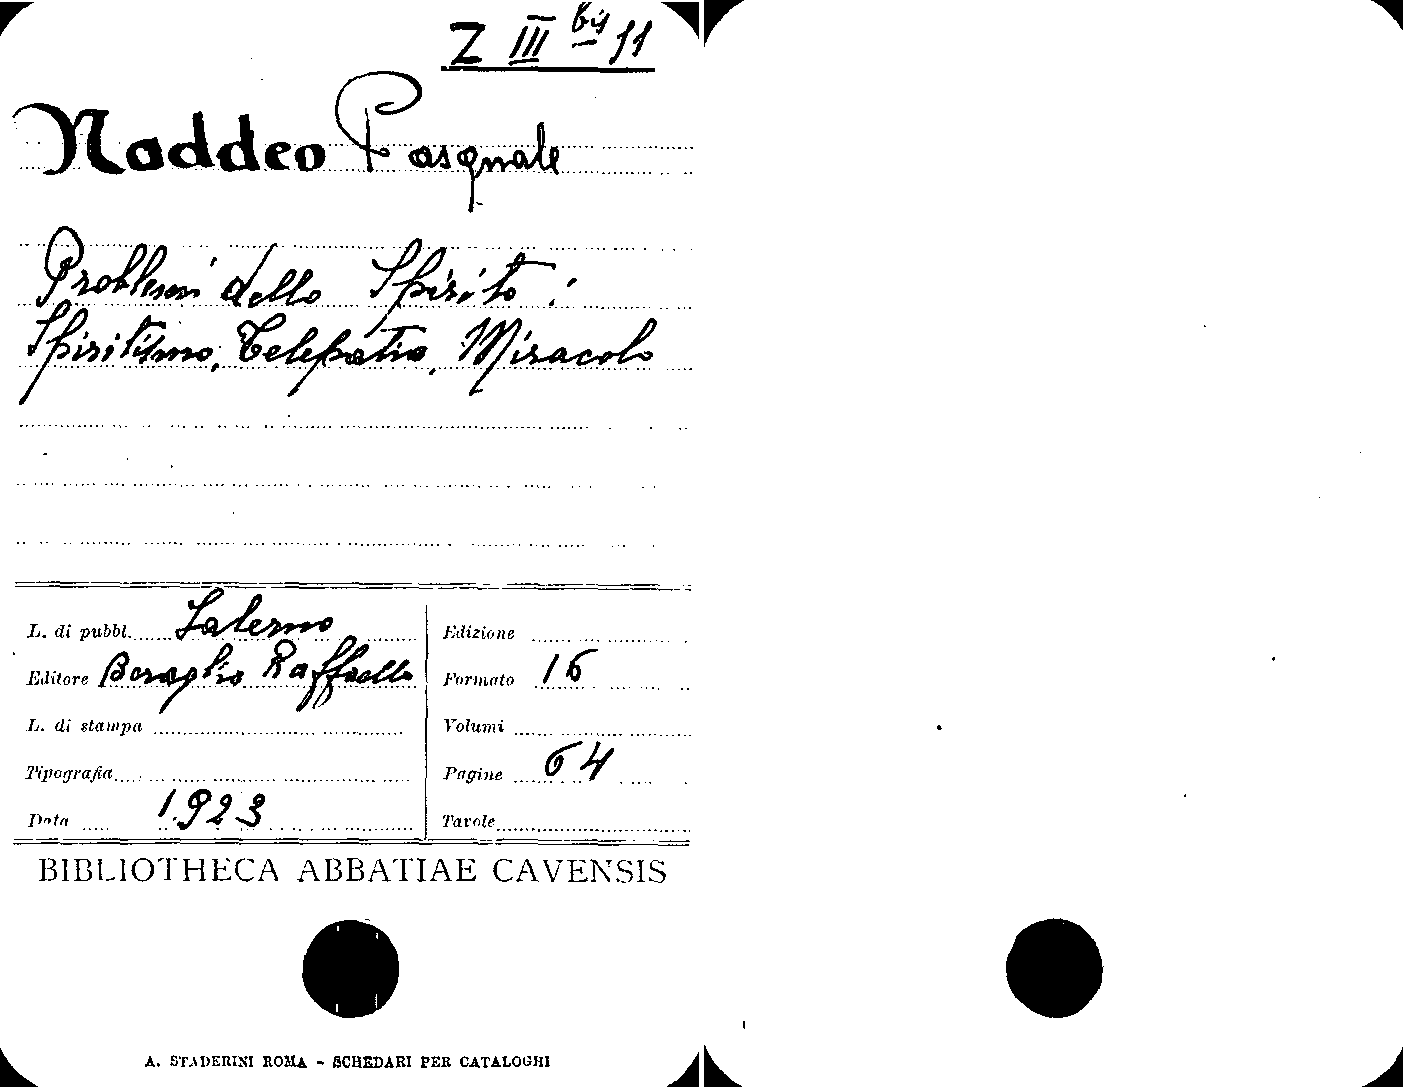 Z III bis 11
Naddeo Pasquale
Problemi dello Spirito:
Spiritismo, Telepatia, Miracolo
L. di pubbl. Salerno
Editore Beraglio Raffaello
L. di stampa
Tipografia
Data 1923
Edizione
Formato 16
Volumi
Pagine 64
Tavole
BIBLIOTHECA ABBATIAE CAVENSIS
A. STADERINI ROMA - SCHEDARI PER CATALOGHI